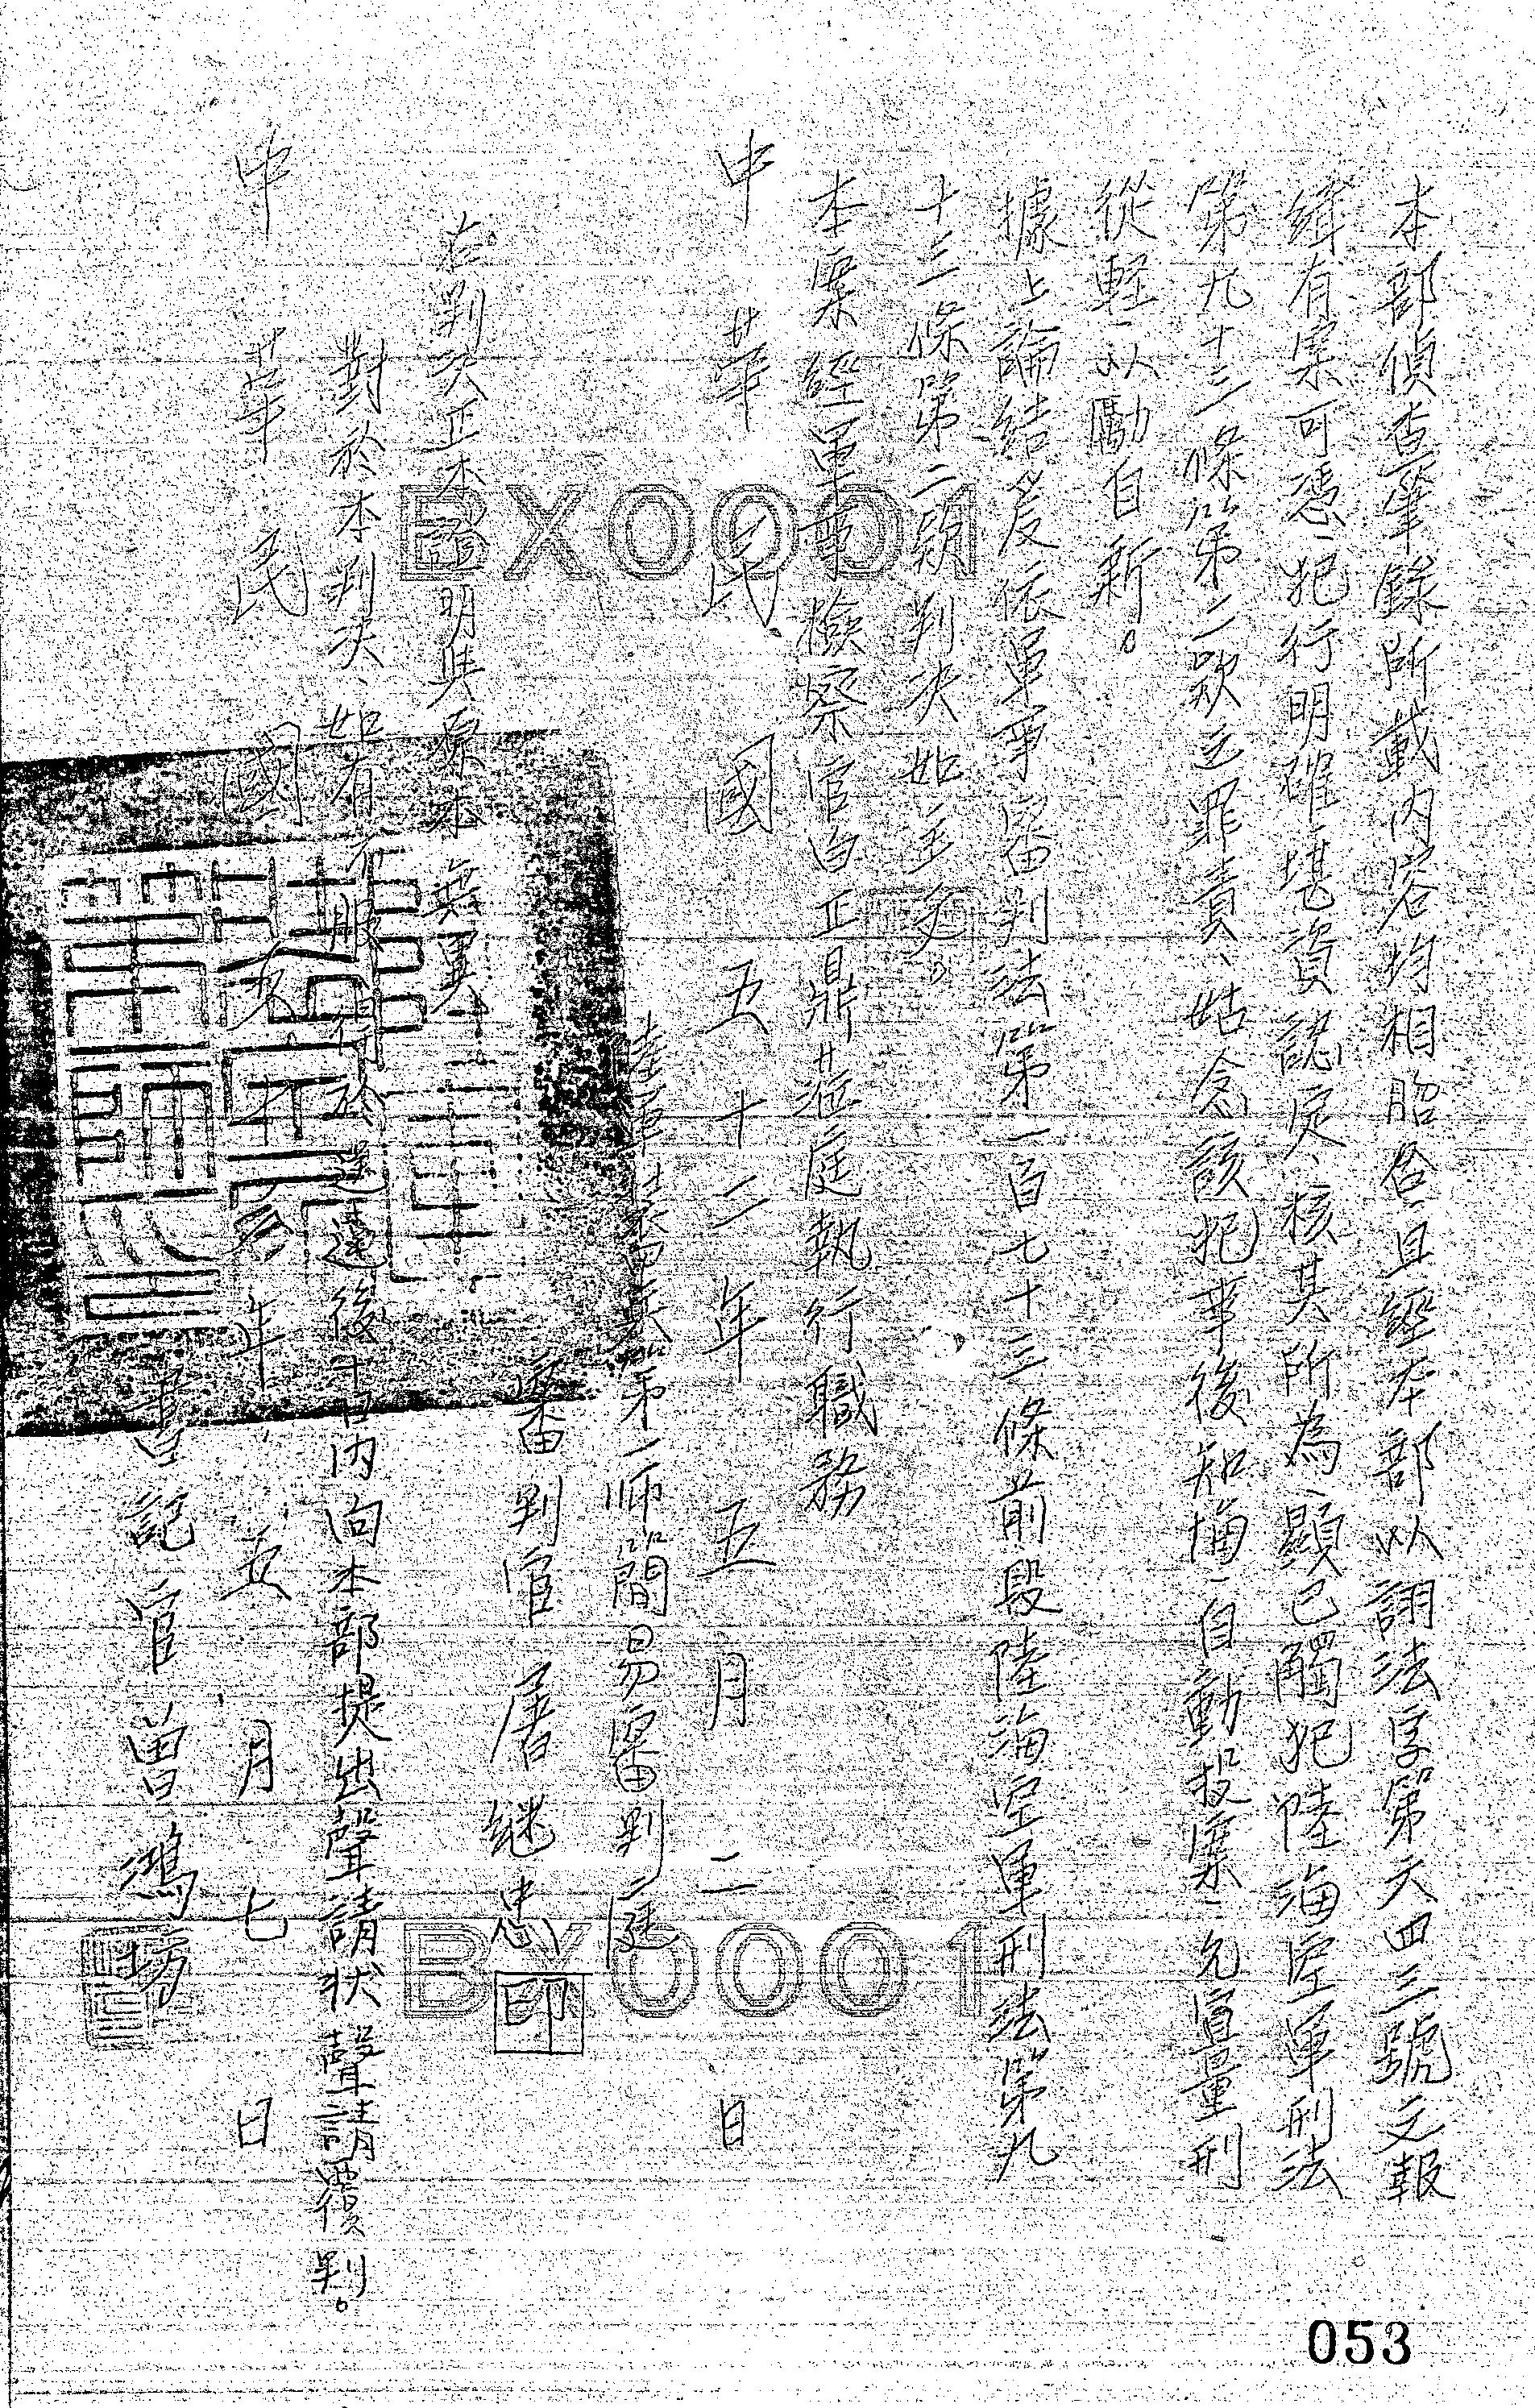 本部偵查筆錄所載內容均相脗合且經本部以詡法字第六四三號文報
緝有案可憑、犯行明確堪資認定、核其所為、顯已觸犯陸海空軍刑法
第九十三條第二款之罪責、姑念該犯事後知悔、自動投案、允宜量刑
從輕、以勵自新。
據上論結爰依軍事審判法第一百七十三條前段陸海空軍刑法第九
十三條第二款判決如主文。
本案經軍事檢察官白正鼎蒞庭執行職務
中華民國五十二年五月二日
陸軍裝甲兵第一師簡易審判庭
審判官屠継忠 印
右判決正本證明與原本無異
對於本判決、如有不服、得於送達後十日內向本部提出聲請狀聲請覆判。
中華民國五十二年五月七日
書記官曾鴻
BX0001
BX0001
053